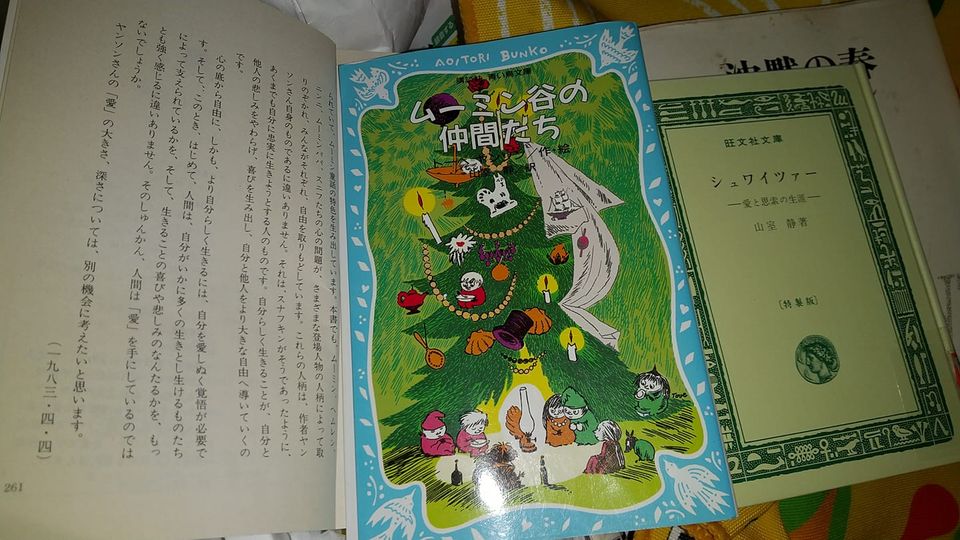 られていて、ムーミン童話の特色を生み出しています。本書でも、ムーミン、ヘムレン、
ミンニ、ムーミンパパ、スニフたちの心の問題が、さまざまな登場人物の人柄によって取
りのぞかれ、みんながそれぞれ、自由を取りもどしています。これらの人柄は、作者ヤン
ソンさん自身のものであるに違いありません。それは、スナフキンがそうであったように、
あくまでも自分に忠実に生きようとする人のものです。自分らしく生きることが、自分と
他人の悲しみをやわらげ、喜びを生み出し、自分と他人をより大きな自由へ導いていくの
です。
心の底から自由に、しかも、より自分らしく生きるには、自分を愛しぬく覚悟が必要で
す。そして、このとき、はじめて、人間は、自分がいかに多くの生きとし生けるものたち
によって支えられているかを、そして、生きることの喜びや悲しみのなんたるかを、もっ
とも強く感じるに違いありません。そのしゅんかん、人間は「愛」を手にしているのでは
ないでしょうか。
ヤンソンさんの「愛」の大きさ、深さについては、別の機会に考えたいと思います。
(一九八三・四・四)
261
AOITORI BUNKO
青い鳥文庫
ムーミン谷の
仲間たち
作・絵
訳
Tove
沈黙の春
旺文社文庫
シュワイツァー
―愛と思索の生涯―
山室 静著
[特製版]